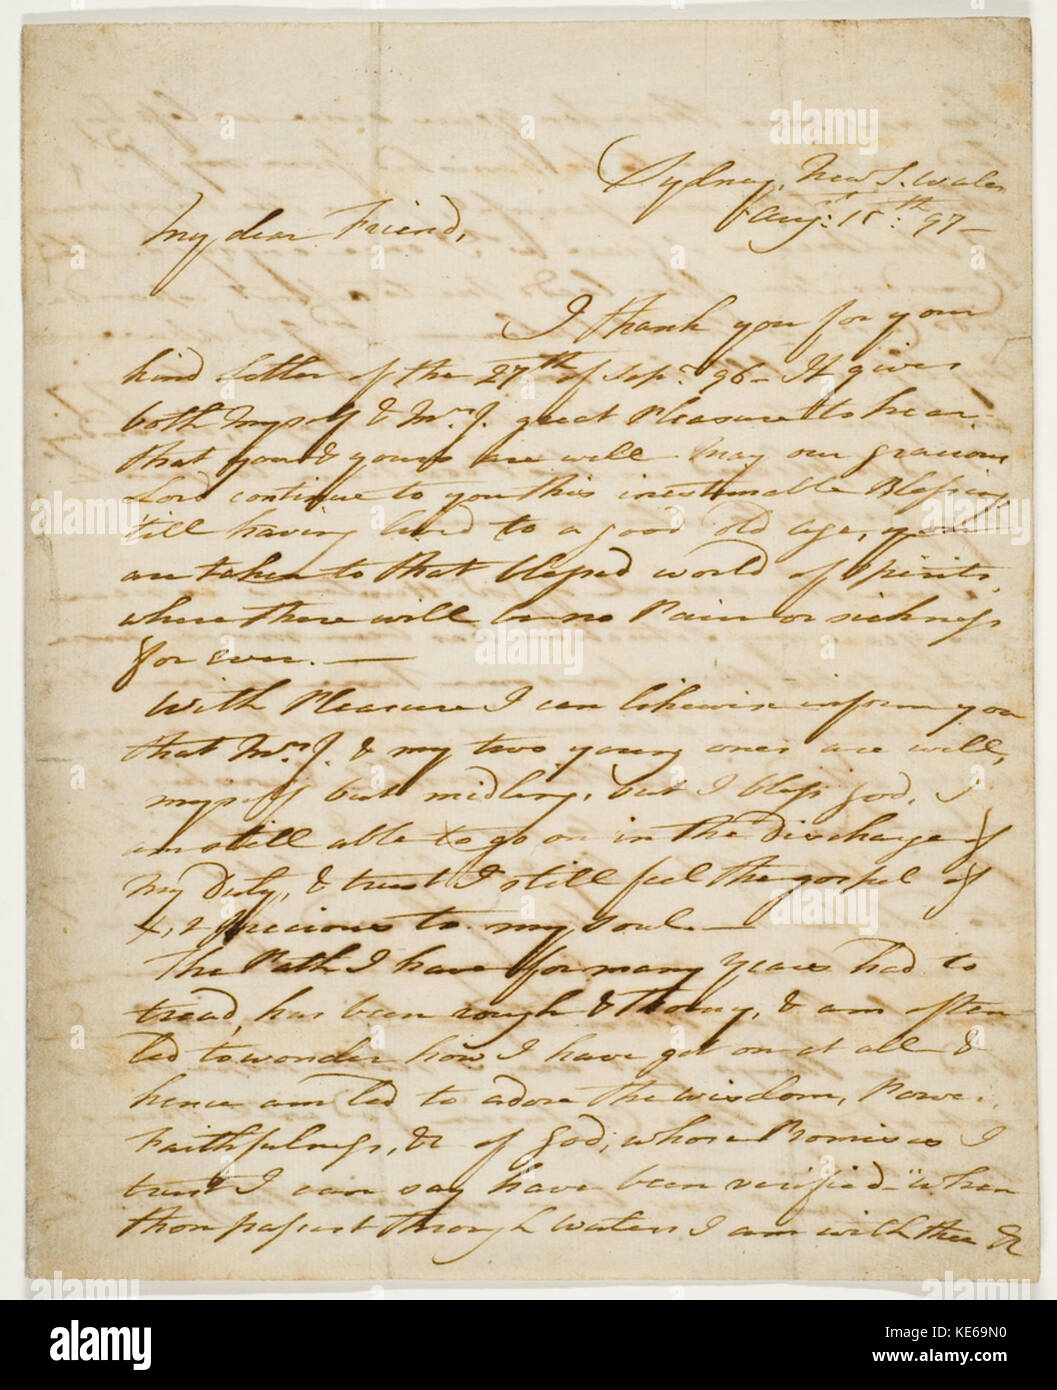 Sydney, New S. Wales
Augst 15th 97 –
My dear Friend,
I thank you for your
kind Letter of the 27th of Sepr. 96 – It gives
both myself & Mrs. J. great Pleasure to hear
that you & yours are well May our gracious
Lord continue to you this inestimable Blessing
till having lived to a good old age, you
are taken to that blessed world of Spirits,
where there will be no Pain or sickness
for ever. —
With Pleasure I can likewise inform you
that Mrs. J. & my two young ones are well,
myself but midling, but I bless God, I
am still able to go on in the discharge of
my Duty, & trust I still feel the gospel of
precious to my soul. —
The Path I have for many Years had to
tread, has been rough & thorny, & am often
led to wonder how I have got on at all &
hence am led to adore the Wisdom, Power,
Faithfulness, &c of God, whose Promises I
trust I can say have been verified – "when
thou passest through Waters I am with thee &c
alamy
a
alamy
Image ID: KE69N0
www.alamy.com